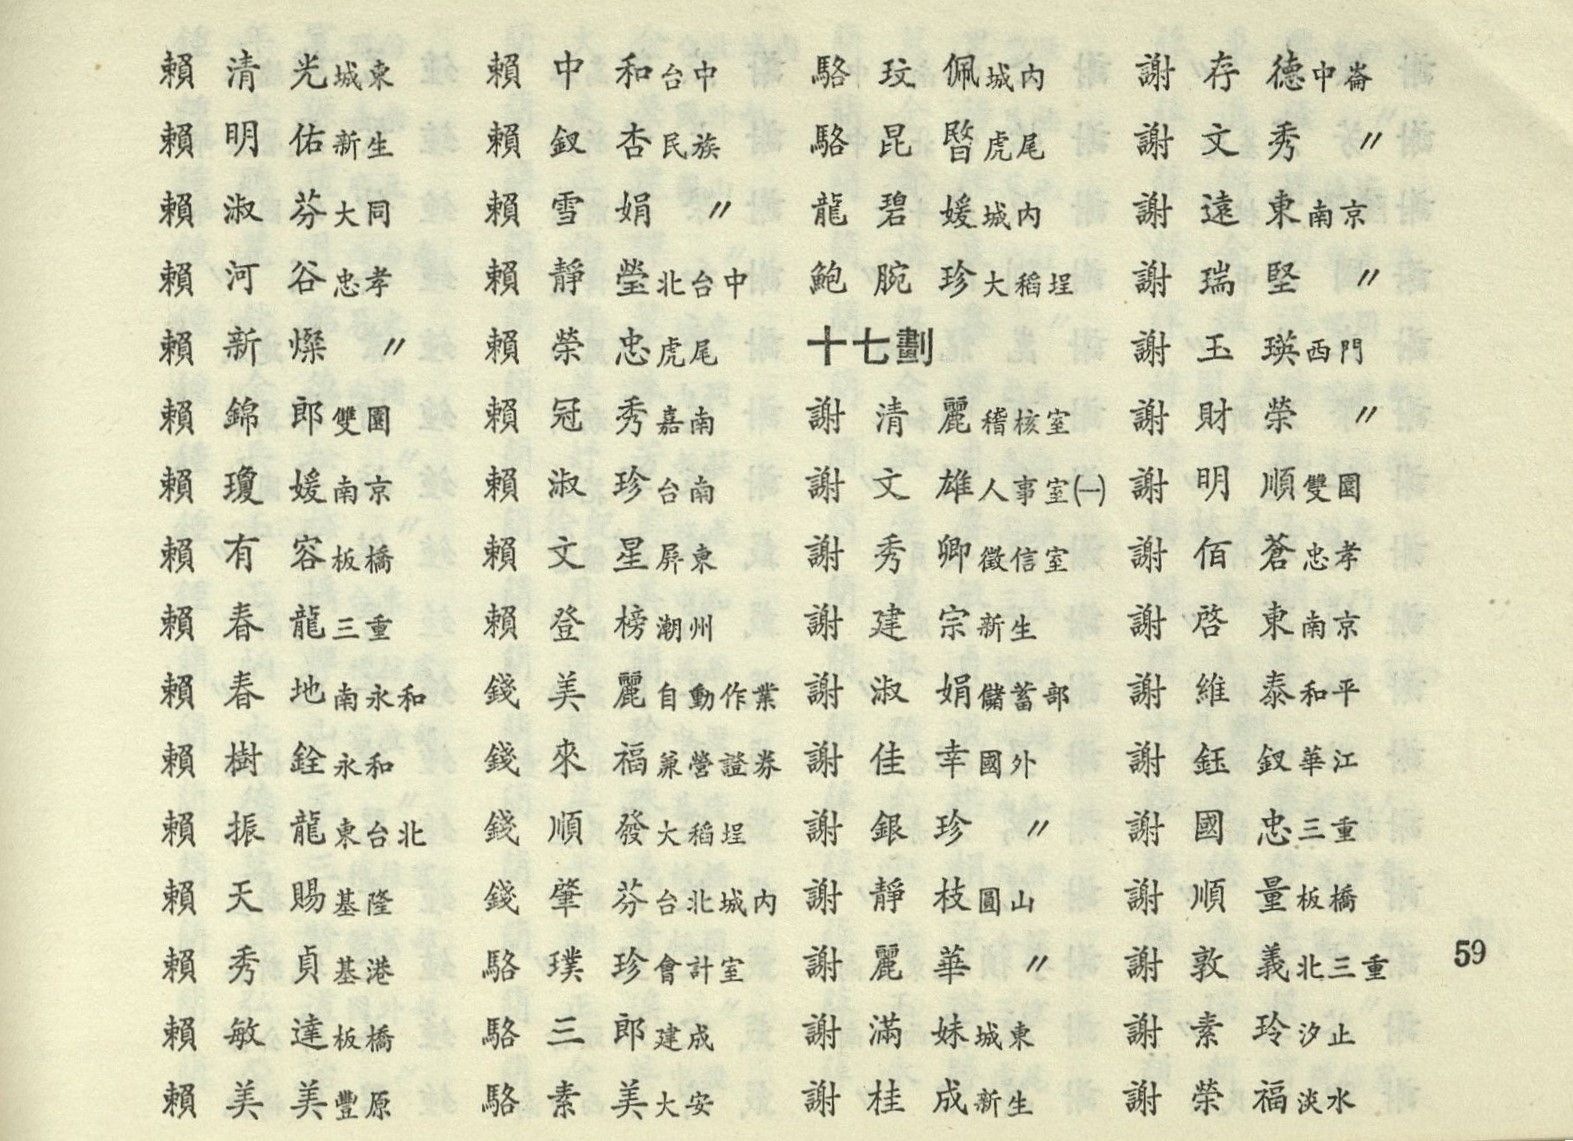 賴清光城東
賴明佑新生
賴淑芬大同
賴河谷忠孝
賴新燦〃
賴錦郎雙園
賴瓊媛南京
賴有容板橋
賴春龍三重
賴春地南永和
賴樹銓永和
賴振龍東台北
賴天賜基隆
賴秀貞基港
賴敏達板橋
賴美美豐原
賴中和台中
賴釵杏民族
賴雪娟〃
賴靜瑩北台中
賴榮忠虎尾
賴冠秀嘉南
賴淑珍台南
賴文星屏東
賴登榜潮州
錢美麗自動作業
錢來福兼營證券
錢順發大稻埕
錢肇芬台北城內
駱璞珍會計室
駱三郎建成
駱素美大安
駱玟佩城内
駱昆暋虎尾
龍碧媛城内
鮑腕珍大稻埕
十七劃
謝清麗稽核室
謝文雄人事室㈠
謝秀卿徵信室
謝建宗新生
謝淑娟儲蓄部
謝佳幸國外
謝銀珍〃
謝靜枝圓山
謝麗華〃
謝滿妹城東
謝桂成新生
謝存德中崙
謝文秀〃
謝遠東南京
謝瑞堅〃
謝玉瑛西門
謝財榮〃
謝明順雙園
謝佰蒼忠孝
謝啓東南京
謝維泰和平
謝鈺釵華江
謝國忠三重
謝順量板橋
謝敦義北三重
謝素玲汐止
謝榮福淡水
59